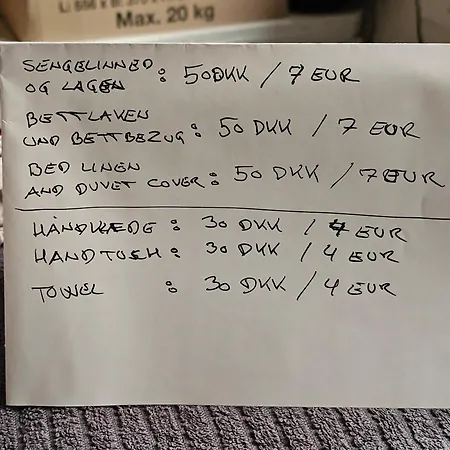 Max. 20 kg
SENGELINNED
OG LAGEN : 50 DKK / 7 EUR
BETTLAKEN
UND BETTBEZUG : 50 DKK / 7 EUR
BED LINEN
AND DUVET COVER : 50 DKK / 7 EUR
HÅNDKÆDE : 30 DKK / 4 EUR
HANDTUCH : 30 DKK / 4 EUR
TOWEL : 30 DKK / 4 EUR